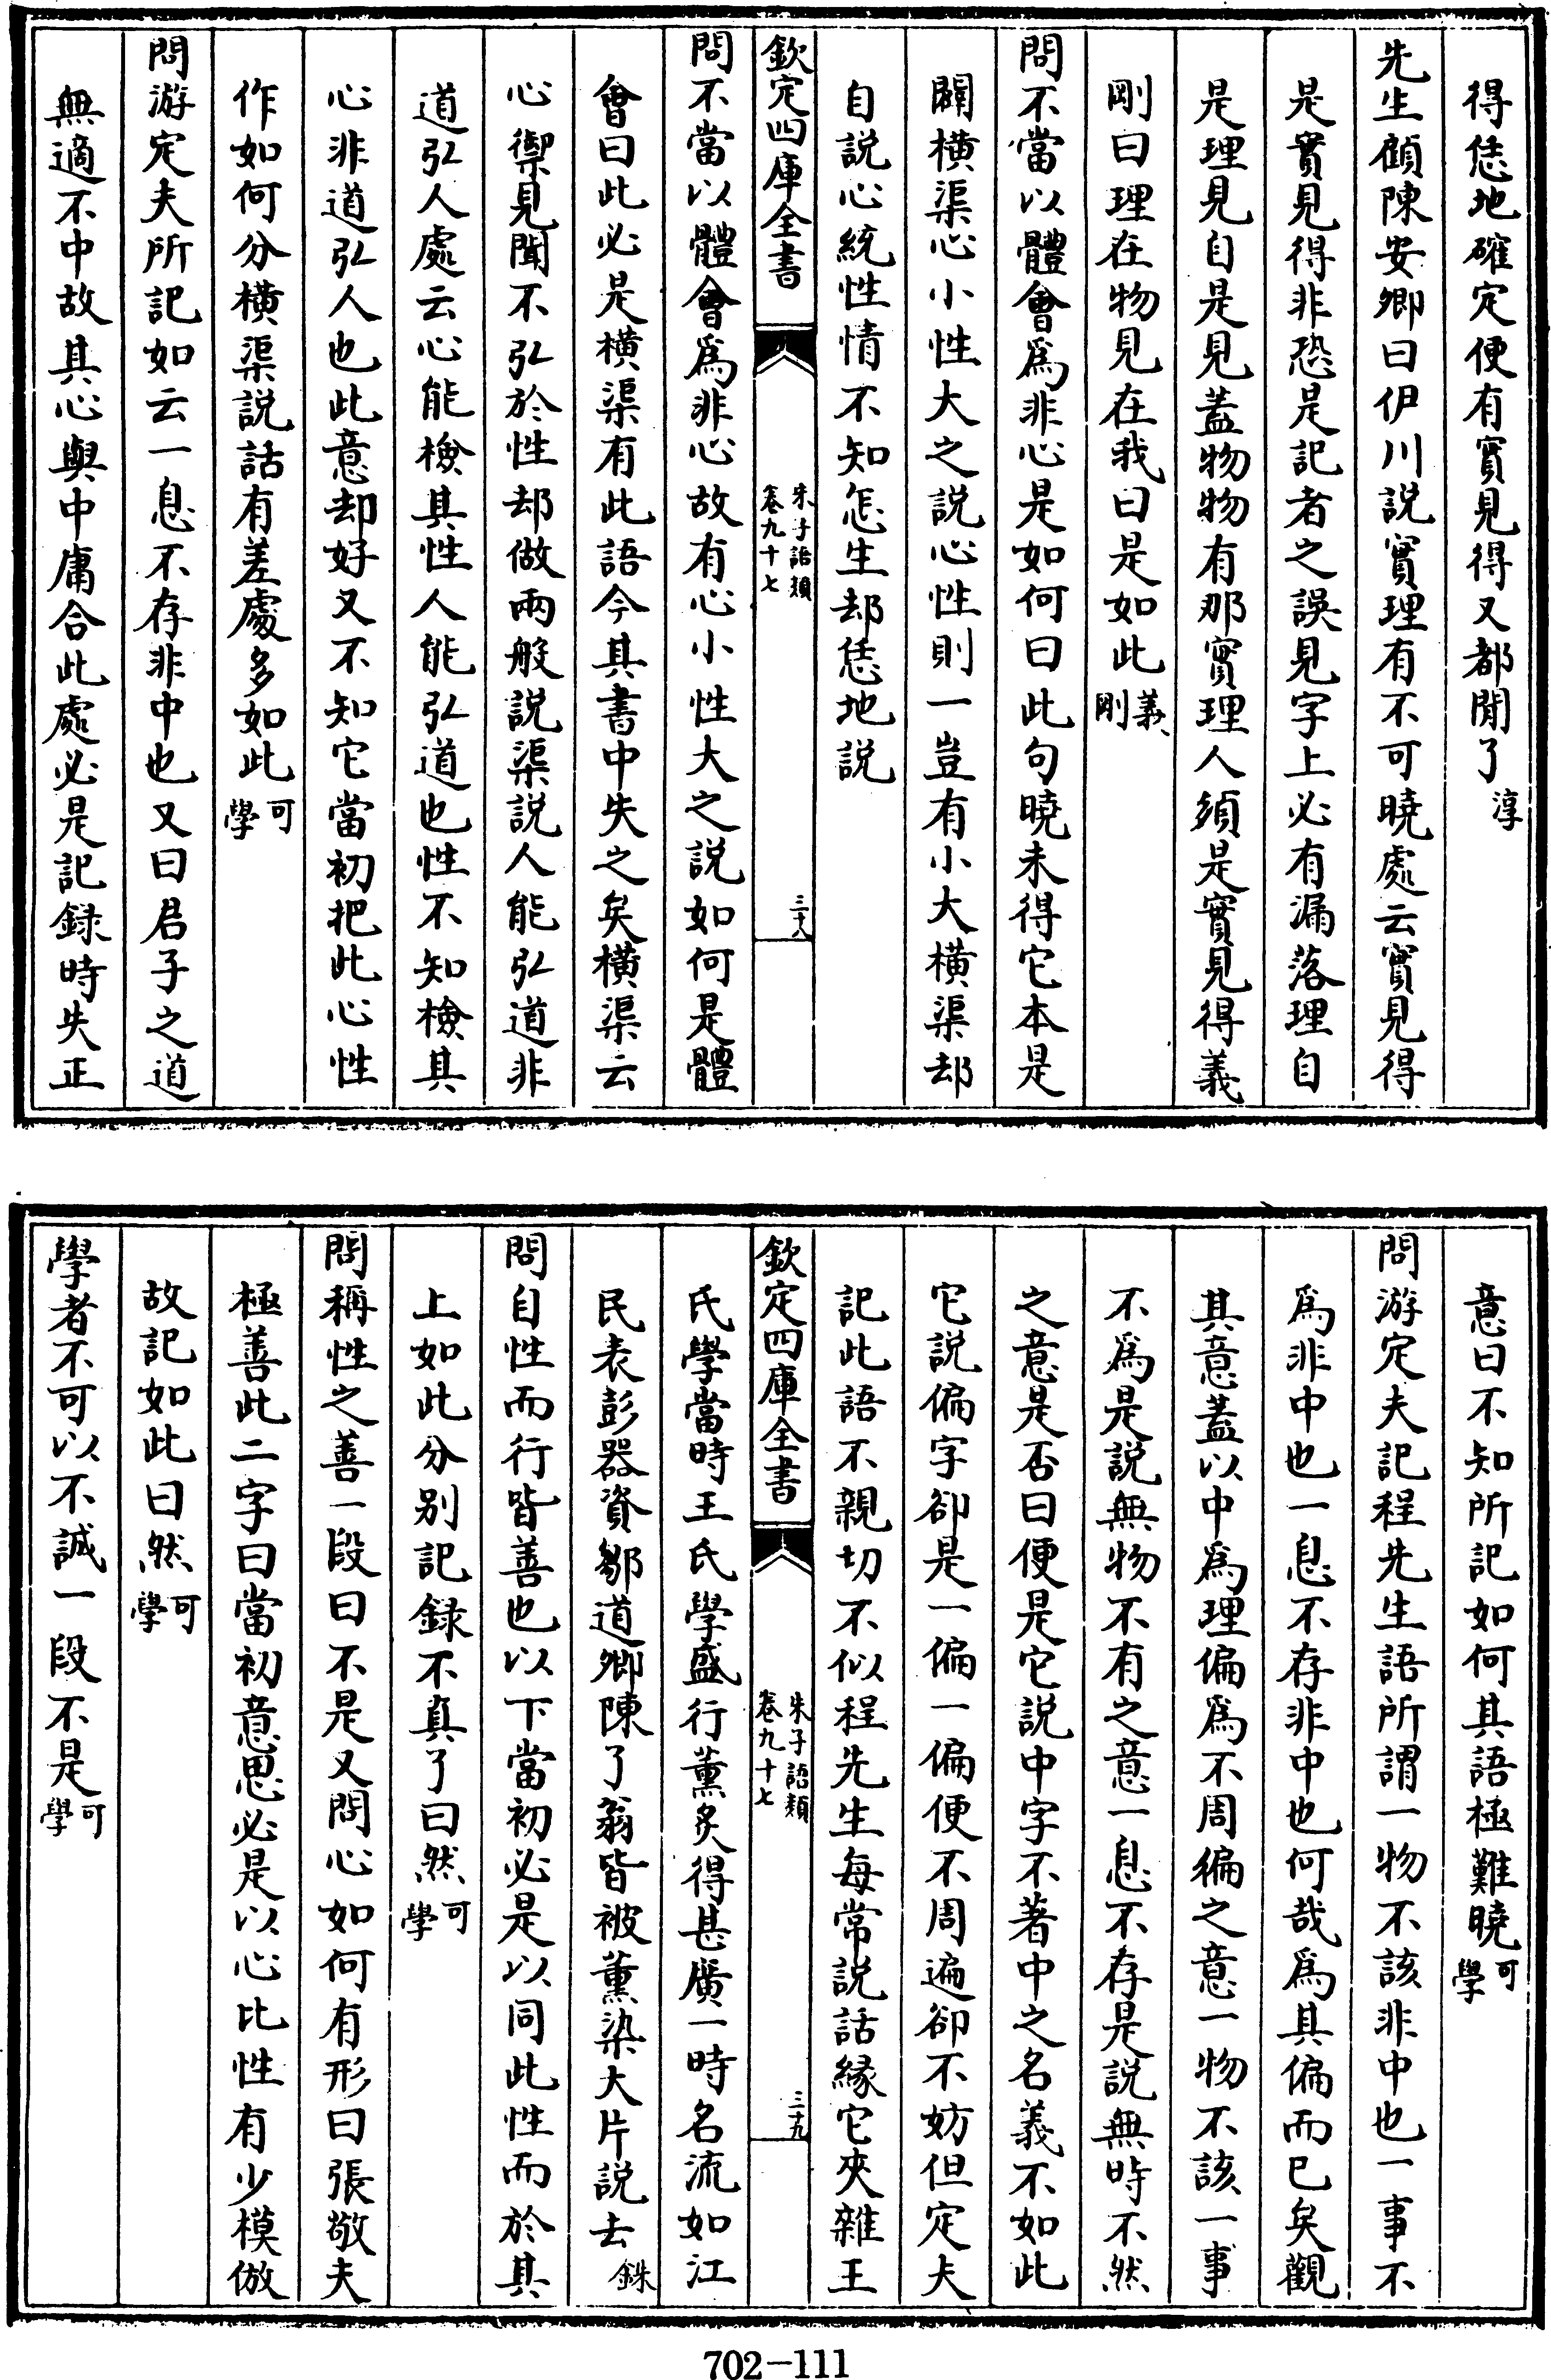 得恁地確定便有實見得又都閒了淳
先生顧陳安卿曰伊川説實理有不可曉處云實見得
是實見得非恐是記者之誤見字上必有漏落理自
是理見自是見蓋物物有那實理人須是實見得義
剛曰理在物見在我曰是如此義剛
問不當以體會為非心是如何曰此句曉未得它本是
闢橫渠心小性大之説心性則一豈有小大橫渠却
自説心統性情不知怎生却恁地説
欽定四庫全書
朱子語類
卷九十七
三十八
問不當以體會為非心故有心小性大之説如何是體
會曰此必是橫渠有此語今其書中失之矣橫渠云
心禦見聞不弘於性却做兩般説渠説人能弘道非
道弘人處云心能檢其性人能弘道也性不知檢其
心非道弘人也此意却好又不知它當初把此心性
作如何分橫渠説話有差處多如此可學
問游定夫所記如云一息不存非中也又曰君子之道
無適不中故其心與中庸合此處必是記録時失正
意曰不知所記如何其語極難曉可學
問游定夫記程先生語所謂一物不該非中也一事不
為非中也一息不存非中也何哉為其偏而已矣觀
其意蓋以中為理偏為不周徧之意一物不該一事
不為是説無物不有之意一息不存是説無時不然
之意是否曰便是它説中字不著中之名義不如此
它説偏字卻是一偏一偏便不周遍卻不妨但定夫
記此語不親切不似程先生每常説話緣它夾雜王
欽定四庫全書
朱子語類
卷九十七
三十九
氏學當時王氏學盛行薰炙得甚廣一時名流如江
民表彭器資鄒道卿陳了翁皆被薰染大片説去銖
問自性而行皆善也以下當初必是以同此性而於其
上如此分别記録不真了曰然可學
問稱性之善一段曰不是又問心如何有形曰張敬夫
極善此二字曰當初意思必是以心比性有少模倣
故記如此曰然可學
學者不可以不誠一段不是可學
702-111